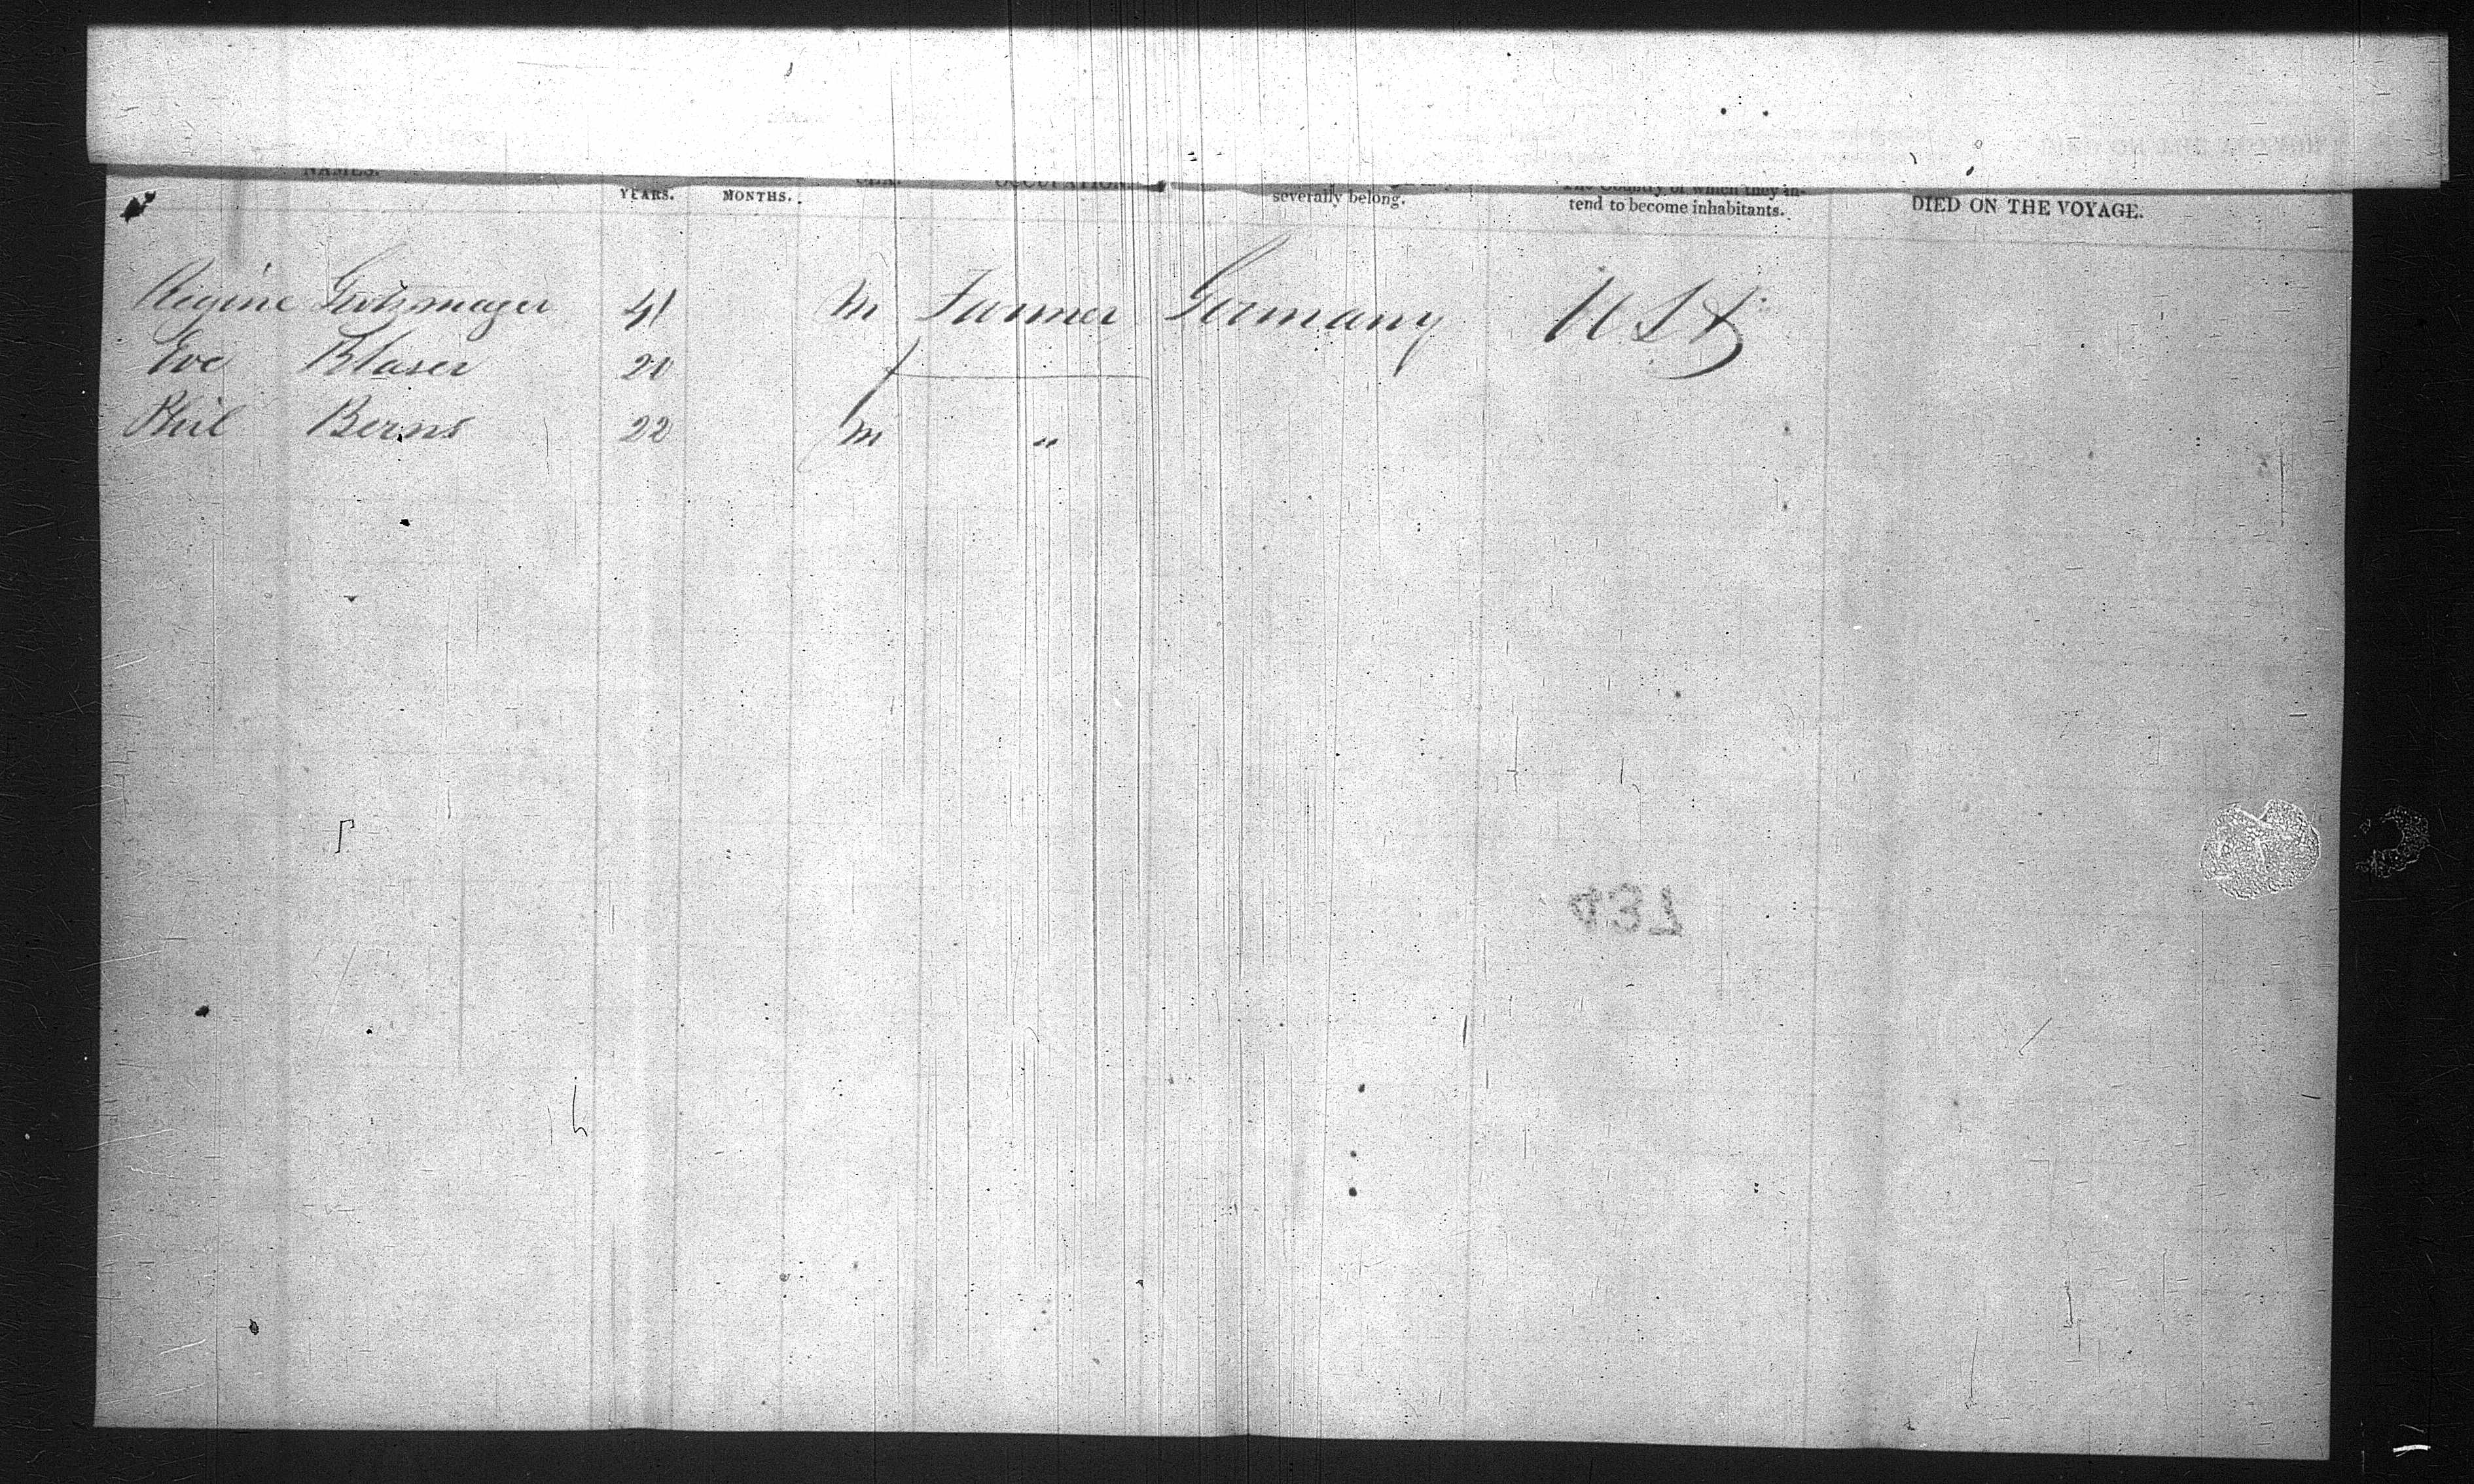 NAMES.
YEARS. MONTHS. SEX. OCCUPATION. severally belong. The Country of which they in-
tend to become inhabitants. DIED ON THE VOYAGE.
Regine 41 m Farmer Germany USA
Eve Blaser 20 f
Phil Berns 22 m "
734